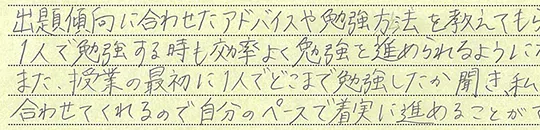 出題傾向に合わせたアドバイスや勉強方法を教えてもら
1人で勉強する時も効率よく勉強を進められるように
また、授業の最初に1人でどこまで勉強したか聞き、私
合わせてくれるので自分のペースで着実に進めることがで